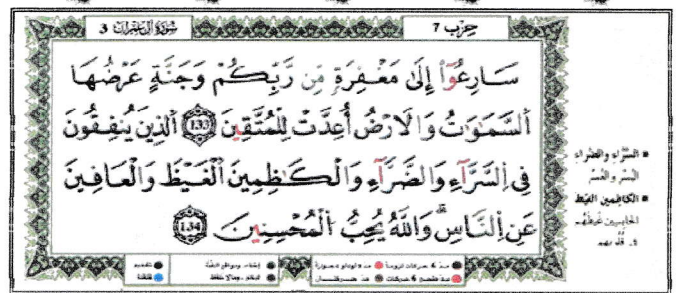 سُورَةُ آلِ عِمْرَان 3
حِزب 7
سَارِعُوٓاْ إِلَىٰ مَغْفِرَةٖ مِّن رَّبِّكُمْ وَجَنَّةٍ عَرْضُهَا
اَ۬لسَّمَٰوَٰتُ وَالَارْضُ أُعِدَّتْ لِلْمُتَّقِينَ 133 اَ۬لذِينَ يُنفِقُونَ
فِے اِ۬لسَّرَّآءِ وَالضَّرَّآءِ وَالْكَٰظِمِينَ اَ۬لْغَيْظَ وَالْعَافِينَ
عَنِ اِ۬لنَّاسِۖ وَاللَّهُ يُحِبُّ اُ۬لْمُحْسِنِينَ 134
السَّرَّاء والضَّرَّاء
اليُسْر والعُسْر
الكاظِمين الغَيْظ
الحابسين غيظهم
في قلوبهم